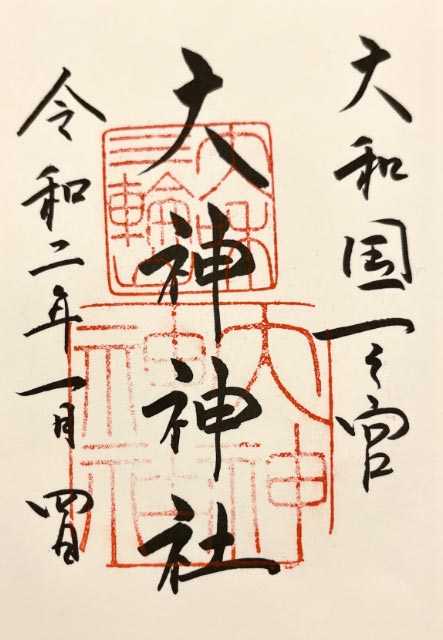 大和国一之宮
大神神社
令和二年一月四日
大和
三輪山
大神
神社